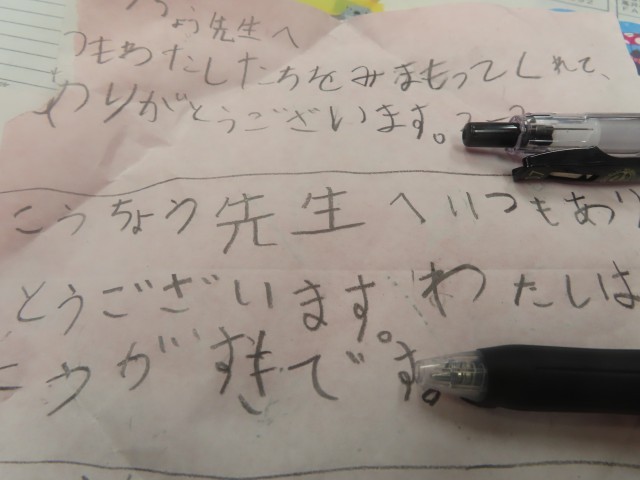 ょう先生へ
つもわたしたちをみまもってくれて、
りがとうございます。
こうちょう先生へいつもあり
とうございます。わたしは
こうがすきです。